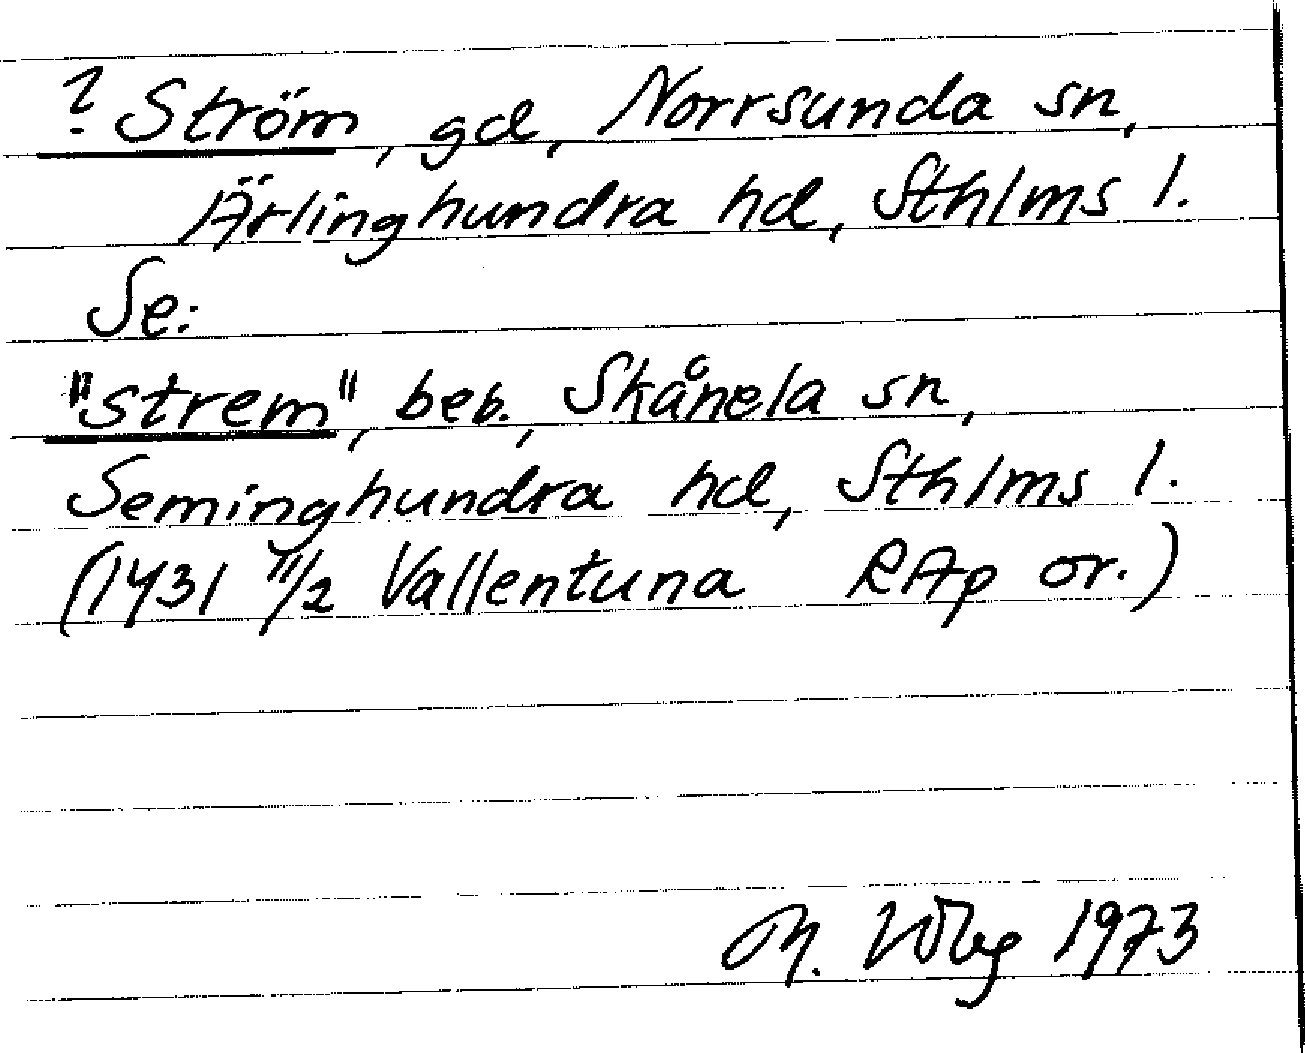 ? Ström, gd, Norrsunda sn,
Ärlinghundra hd, Sthlms l.
Se:
"strem", beb., Skånela sn,
Seminghundra hd, Sthlms l.
(1431 11/2 Vallentuna RAp or.)
M. 1973